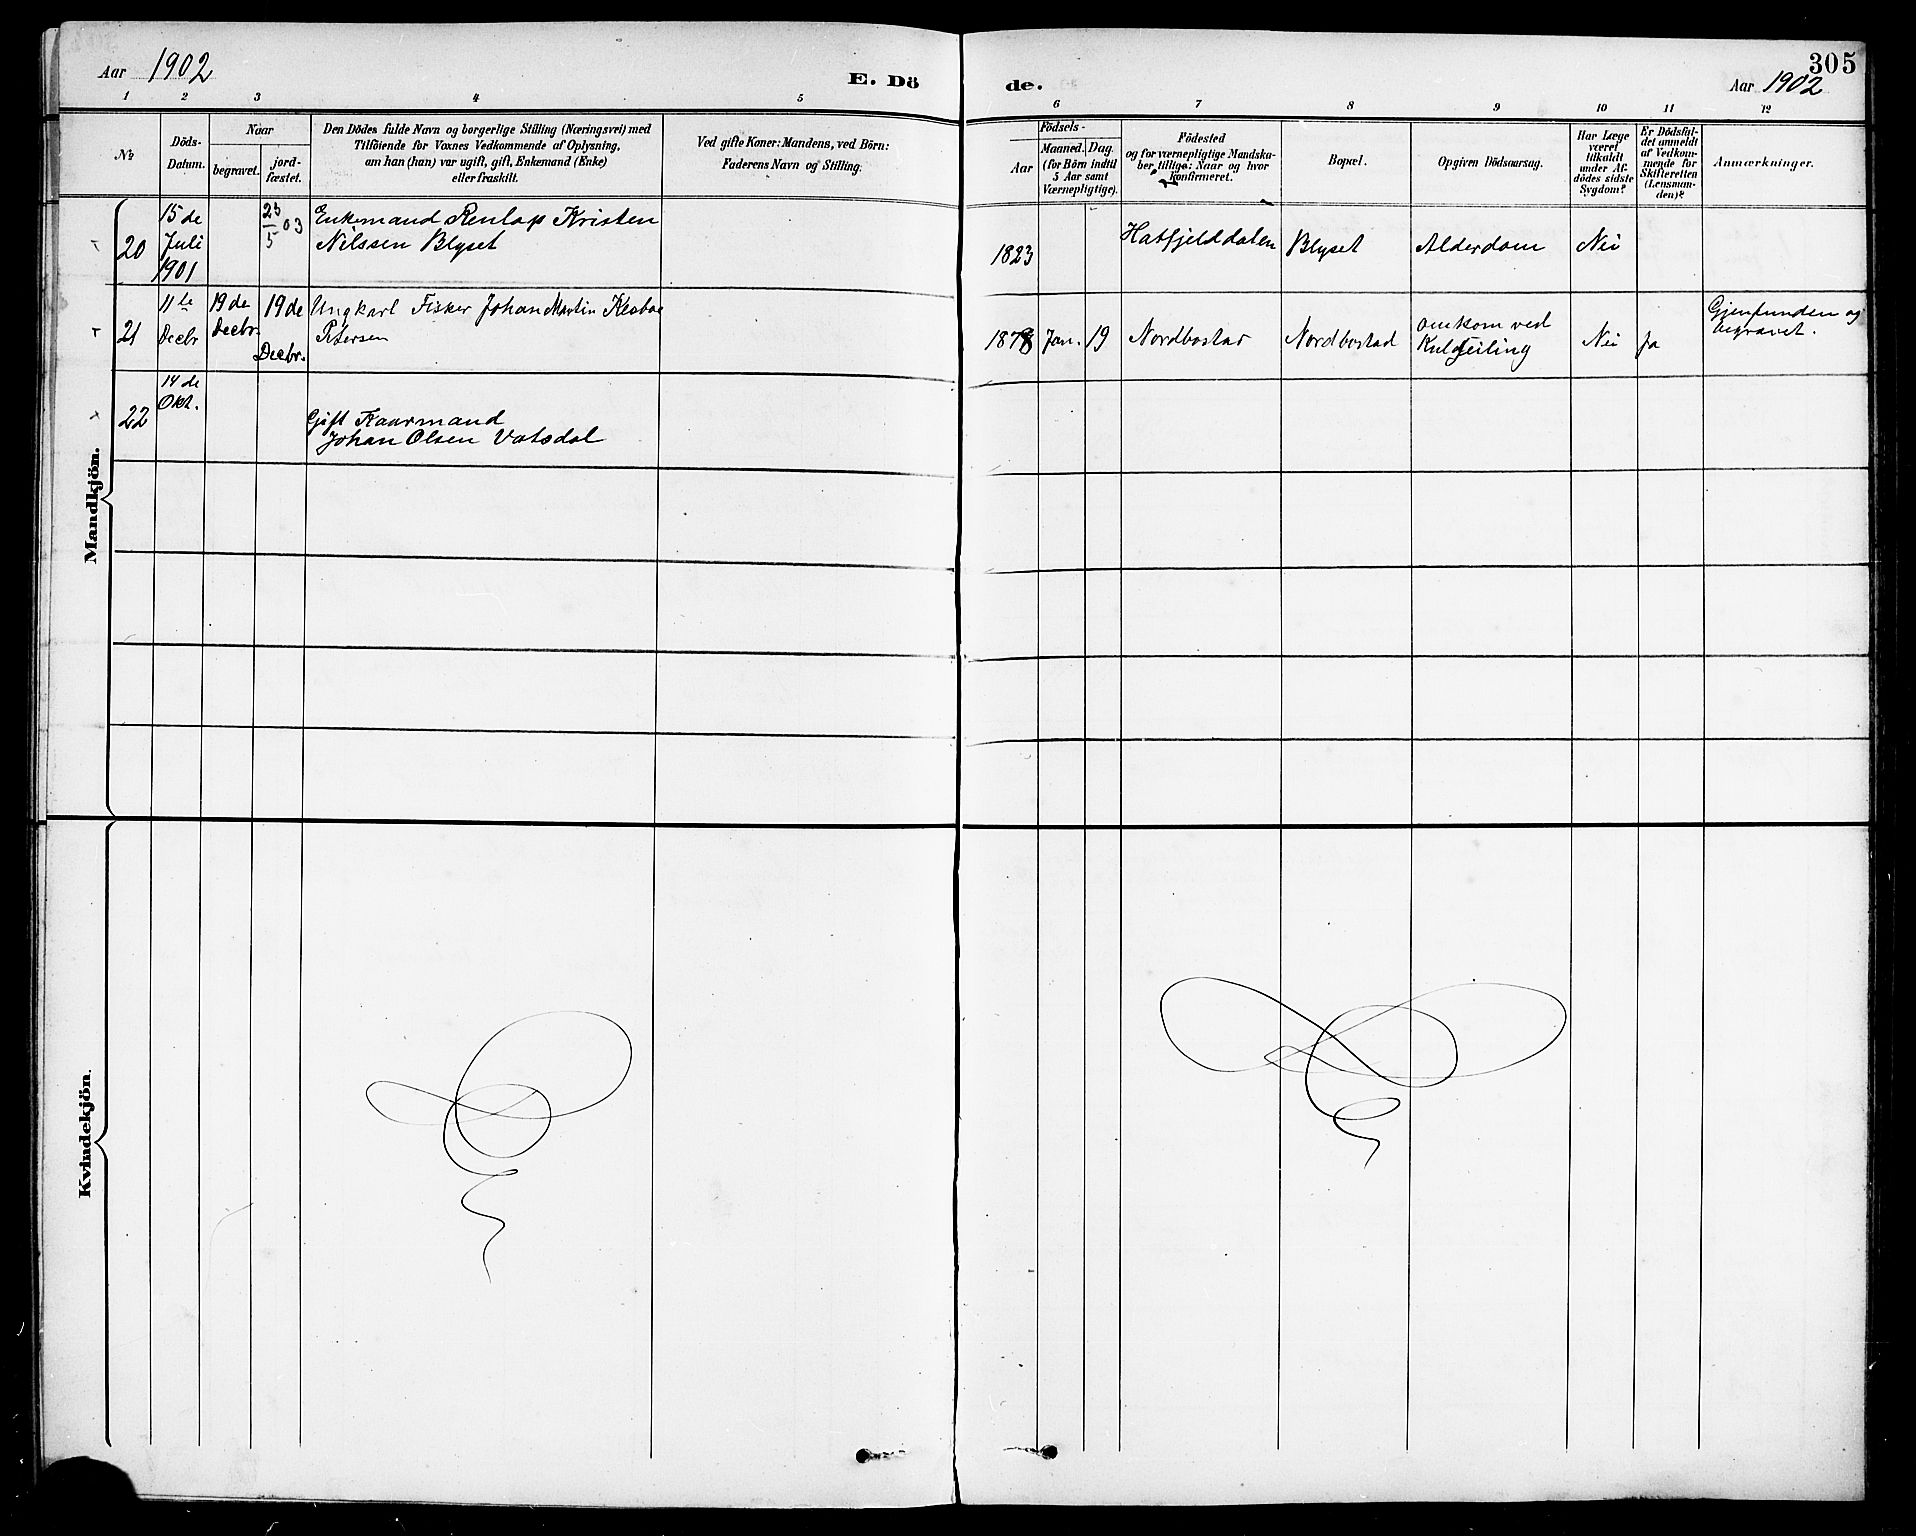 Aar 1902
E. Dö
de.
305
Aar 1902
1 2 3 4 5
6 7 8 9 10 11 12
№
Döds-
Datum.
Naar
begravet.
jord-
fæstet.
Den Dödes fulde Navn og borgerlige Stilling (Næringsvei) med
Tilföiende for Voxnes Vedkommende af Oplysning,
om han (hun) var ugift, gift, Enkemand (Enke)
eller fraskilt.
Ved gifte Koner: Mandens, ved Börn:
Faderens Navn og Stilling.
Födsels-
Aar
Maaned. Dag.
(for Börn indtil
5 Aar samt
Værnepligtige).
Födested
og for værnepligtige Mandska-
ber tillige: Naar og hvor
konfirmeret.
Bopæl.
Opgiven Dödsaarsag.
Har Læge
været
tilkaldt
under Af-
dödes sidste
Sygdom?
Er Dödsfal-
det anmeldt
af Vedkom-
mende for
Skifteretten
(Lensman-
den)?
Anmærkninger.
Mandkjön.
20
15 de
Juli
1901
23/5 03
Enkemand Kristen
Nilssen Blyset
1823
Hatfjelddalen
Blyset
Alderdom
Nei
21
11 te
Decbr
19 de
Decbr.
19 de
Decbr.
Ungkarl Fisker Johan Martin
Petersen
1878 Jan. 19
Nordbostad
Nordbostad
omkom ved
Kuldseiling
Nei
ja
Gjenfunden og
begravet.
22
14 de
Okt.
Gift Kaarmand
Johan Olsen Vatsdal
Kvindekjön.